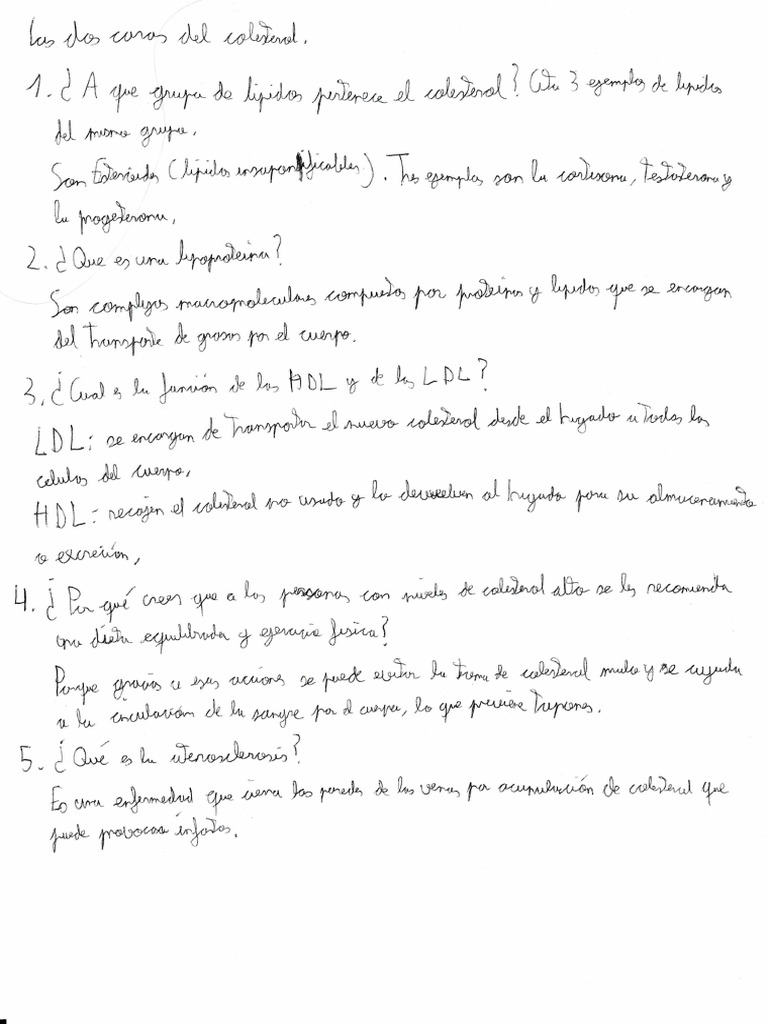 Las dos caras del colesterol.
1. ¿A que grupo de lipidos pertenece el colesterol? Cita 3 ejemplos de lipidos
del mismo grupo.
Son Esteroides (lipidos insaponificables). Tres ejemplos son la cortisona, testosterona y
la progesterona.
2. ¿Que es una lipoproteina?
Son complejos macromoleculares compuestos por proteinas y lipidos que se encargan
del transporte de grasas por el cuerpo.
3. ¿Cual es la función de las HDL y de las LDL?
LDL: se encargan de transportar el nuevo colesterol desde el higado a todas las
celulas del cuerpo.
HDL: recojen el colesterol no usado y lo devuelven al higado para su almacenamiento
o excreción.
4. ¿Por qué crees que a las personas con niveles de colesterol alto se les recomienda
una dieta equilibrada y ejercicio fisico?
Porque gracias a esas acciones se puede evitar la toma de colesterol malo y se ayuda
a la circulación de la sangre por el cuerpo, lo que previene trapones.
5. ¿Qué es la aterosclerosis?
Es una enfermedad que cierra las paredes de las venas por acumulación de colesterol que
puede provocar infartos.